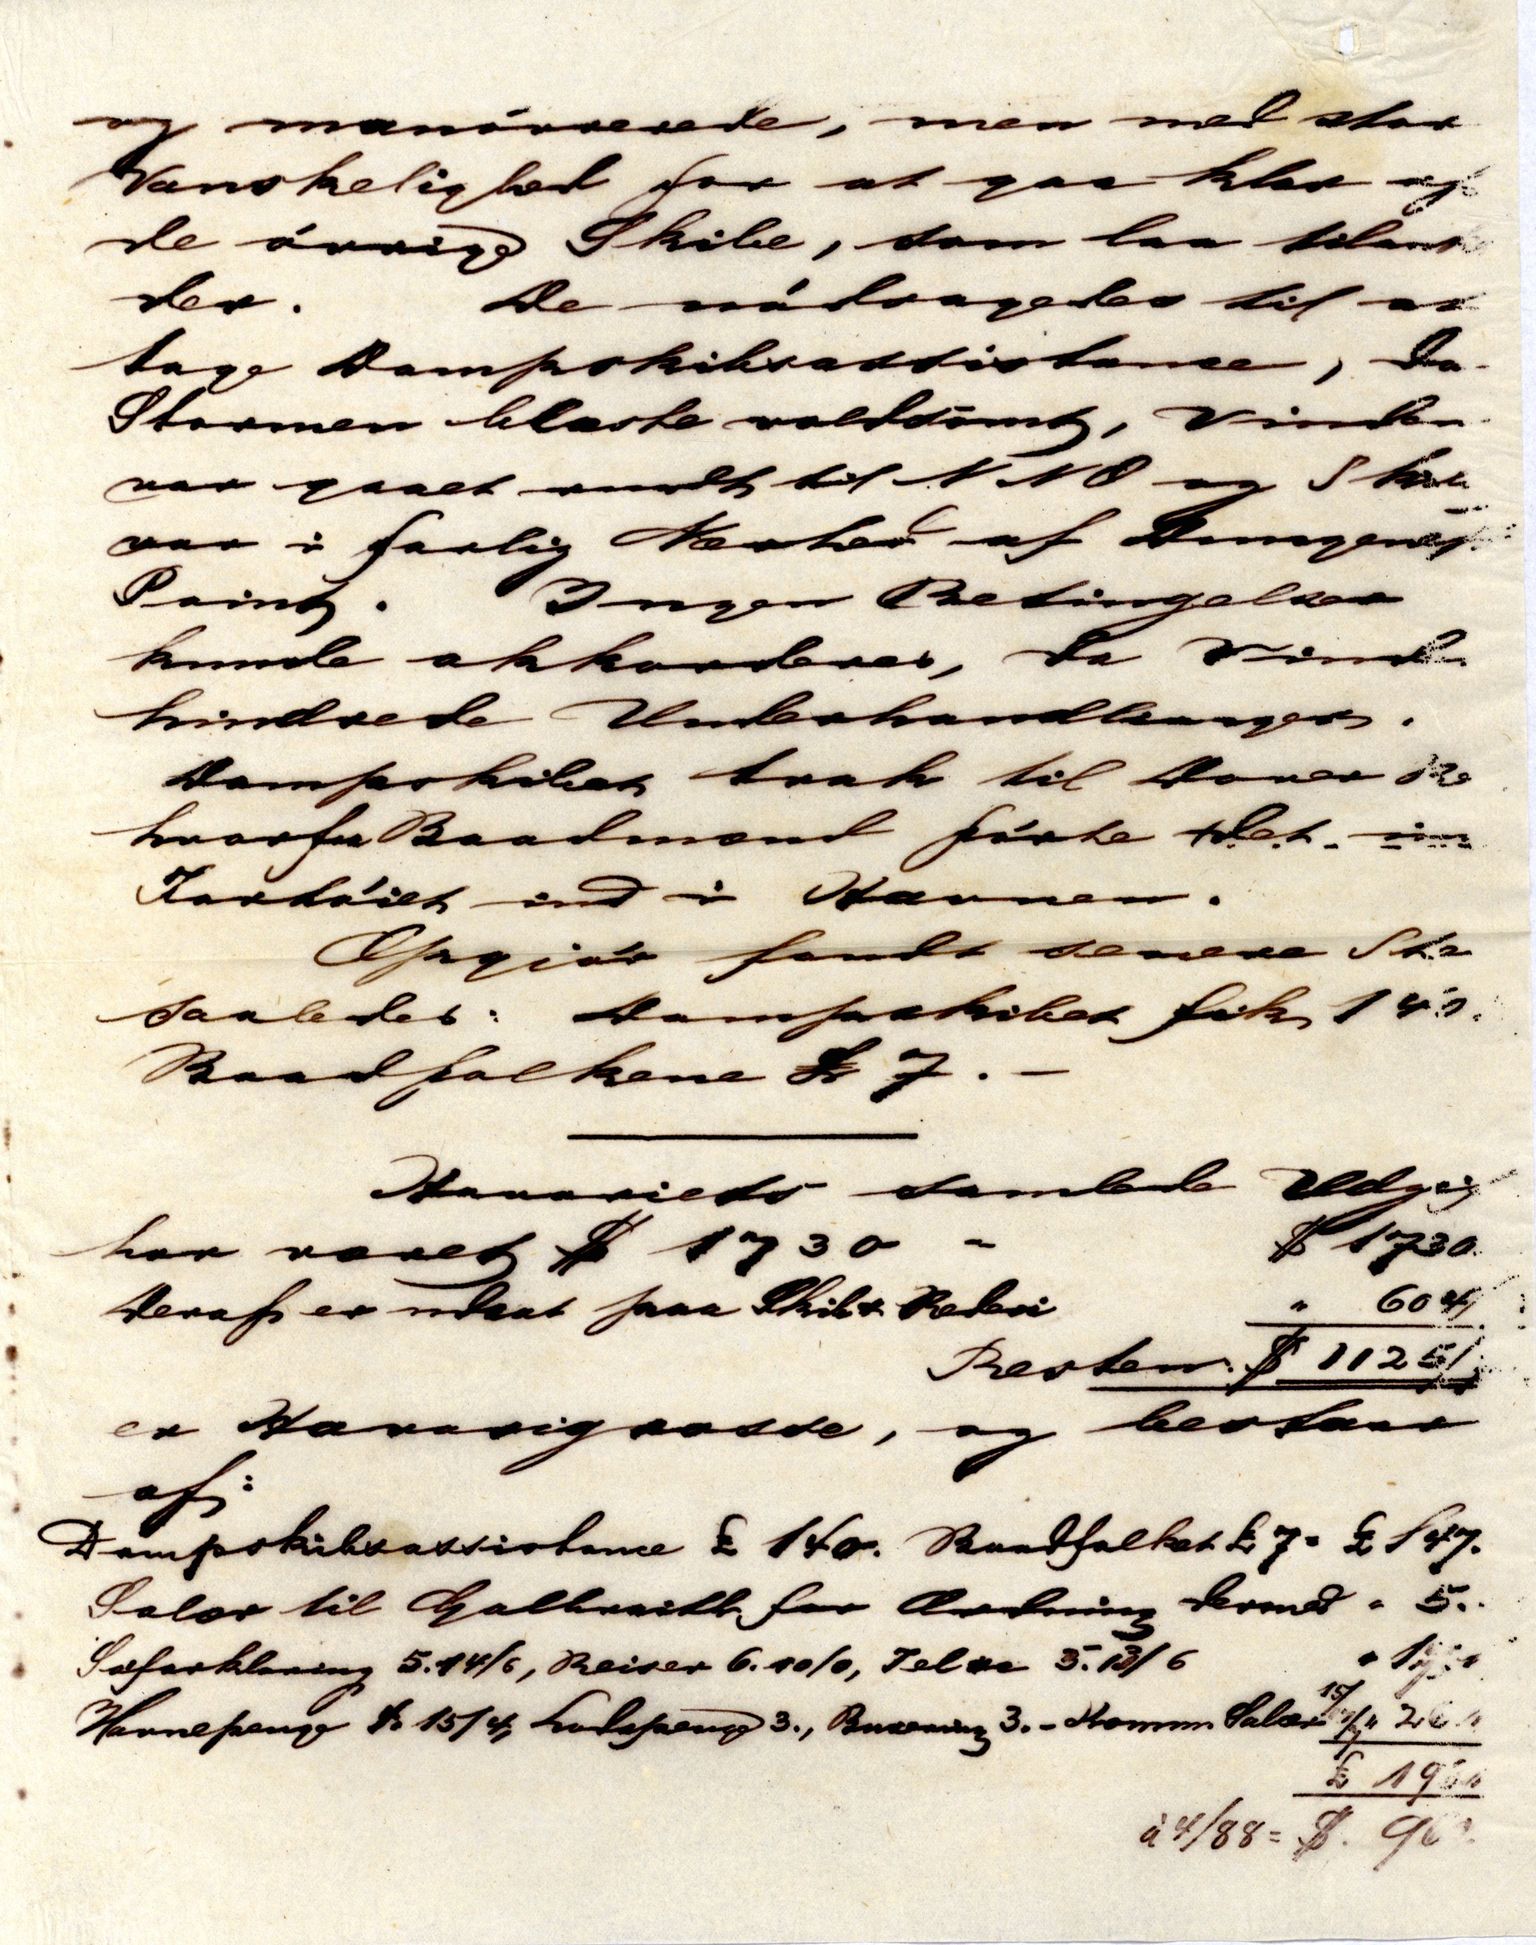 og manövrerede, men med stor
Vanskelighed for at gaa klar af
de övrige Skibe, som laa tilankers
der. De nödsagedes til at
tage Dampskibsassistance, da
Stormen blæste voldsomt, Vinden
var gaaet rundt til NNO og Skibet
var i farlig Nærhed af Dungeness
Point. Ingen Betingelser
kunde akkorderes, da Vinden
hindrede Underhandlinger.
Dampskibet trak til Dover Re
hvorfra Baadmænd förte det in
Fartöiet ind i Havnen.
Opgjör fandt senere Sted
saaledes: Dampskibet fik 140.
Baadfolkene £ 7. —
Havariets samlede Udgift
har været $ 1730 " $ 1730.
Deraf er udsat paa Skib & Rederi " 604
Resten: $ 1125
er Havarigrosse, og bestaar
af:
Dampskibsassistance £ 140. Baadfolket £ 7 = £ 147.
Salær til Galbraith for Ordning dermed " 5.
Söforklaring 5.14/6, Reiser 6.10/0, Telxx 3.13/6 "
Havnepenge £ 15/4, Lodspenge 3., Buxering 3. - Komm. Salær
£
à 4/88 = $.